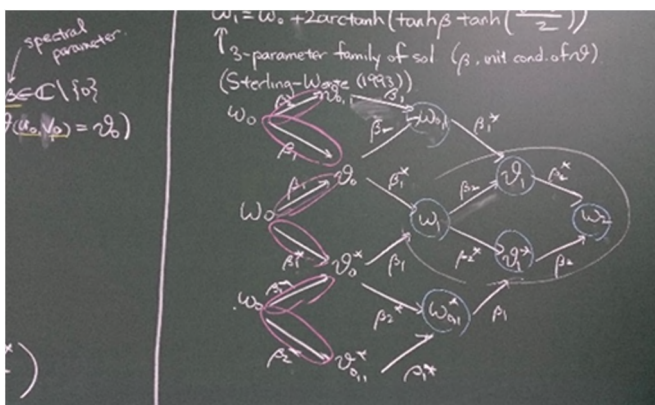 spectral
parameter.
β∈ℂ\{0}
(u₀, v₀) = ϑ₀)
ω₁ = ω₀ + 2arctanh(tanhβ tanh(
2
3-parameter family of sol. (β, init cond. of ϑ).
(Sterling-Wente (1993))
ω₀ β₂ ϑ₀,₁ β₁
β₁ β₂ β₁*
β₁ ϑ₀ β₁* β₂ ϑ₁ β₂*
ω₀ ω₁ ω₂
β₁* ϑ₀* β₁ β₂* ϑ₁* β₂
ω₀ β₂* ω₀,₁* β₁
β₂* ϑ₀,₁* β₁*